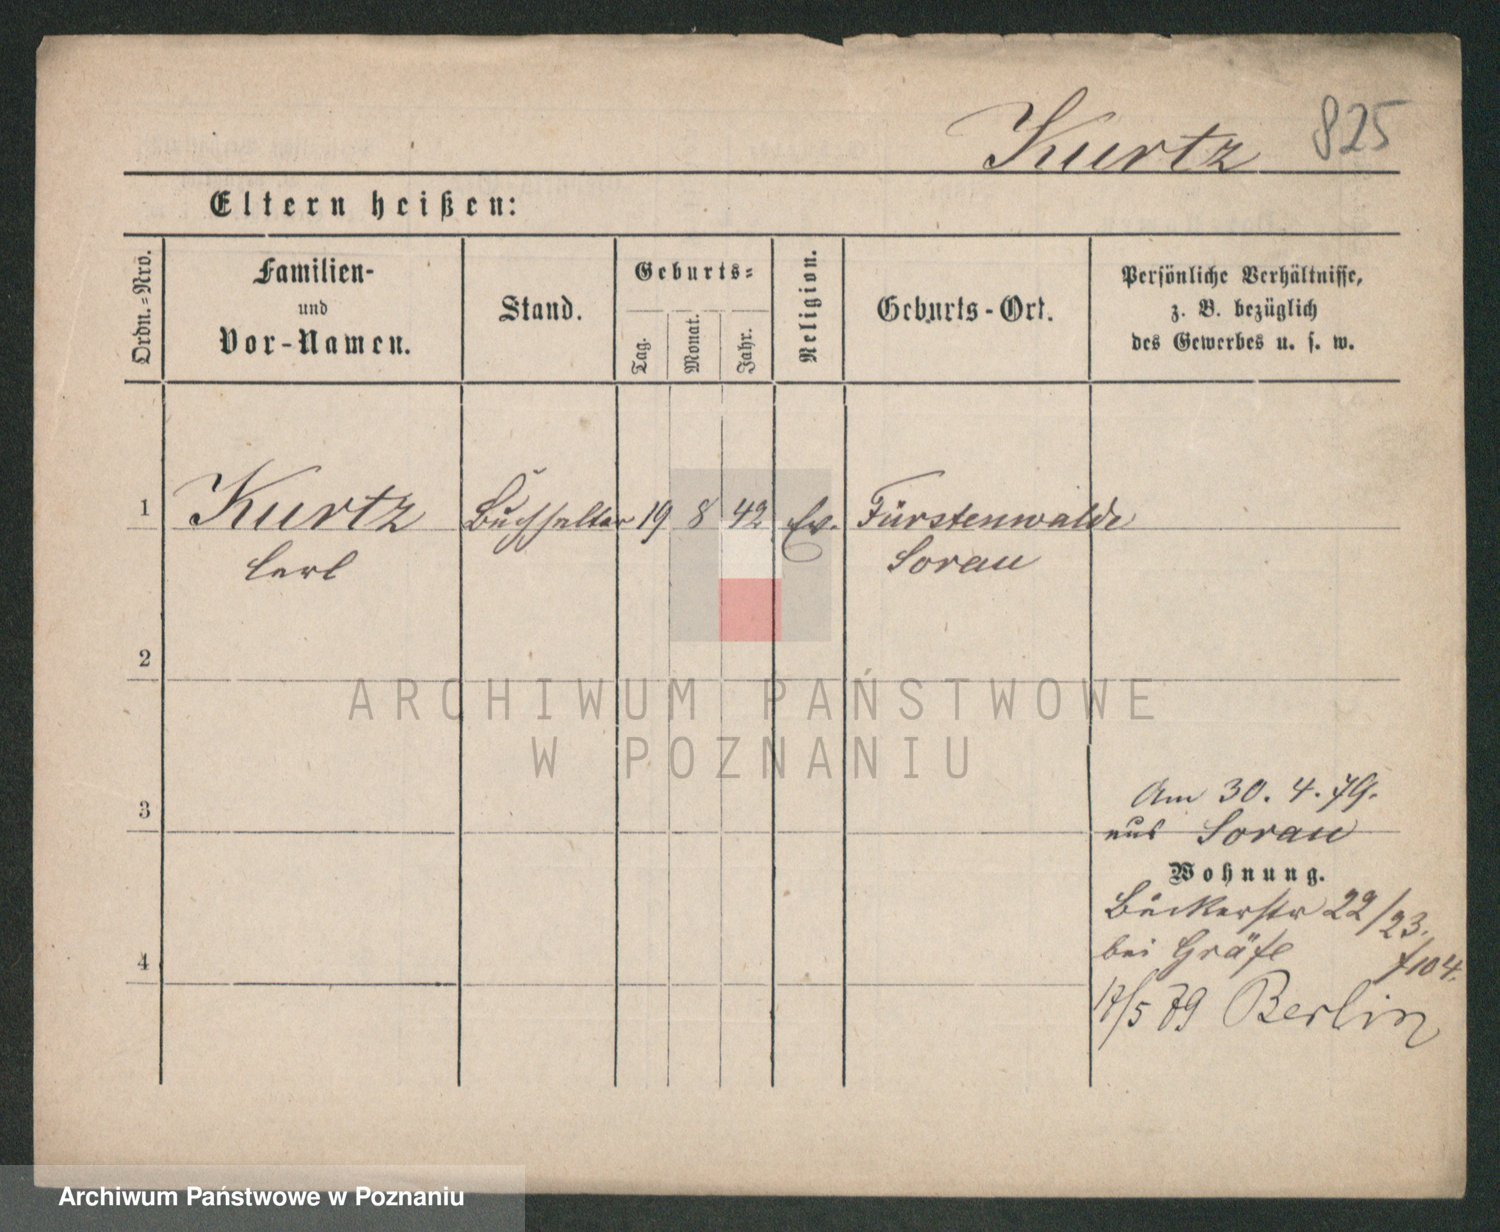 Kurtz 825
Eltern heißen:
Ordn.=Nro.
Familien-
und
Vor-Namen.
Stand.
Geburts=
Tag.
Monat.
Jahr.
Religion.
Geburts-Ort.
Persönliche Verhältnisse,
z. B. bezüglich
des Gewerbes u. s. w.
1 Kurtz Buchhalter 19 8 42 Ev. Fürstenwalde
Carl Sorau
2
ARCHIWUM PAŃSTWOWE
W POZNANIU
Am 30. 4. 79.
3
aus Sorau
Wohnung.
Bäckerstr 22/23.
bei Gräfe f 104.
4
17/5 79 Berlin
Archiwum Państwowe w Poznaniu